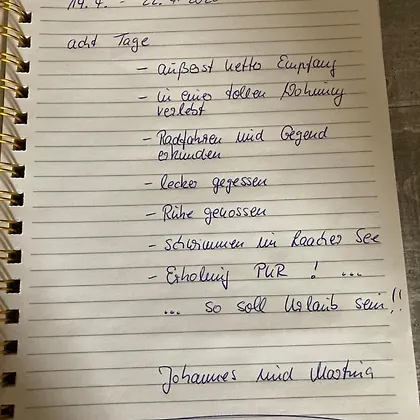 acht Tage
- äußerst netter Empfang
- in einer tollen Wohnung
verlebt
- Radfahren und Gegend
erkunden
- lecker gegessen
- Ruhe genossen
- schwimmen im Laacher See
- Erholung PUR ! ...
... so soll Urlaub sein!!
Johannes und Martina